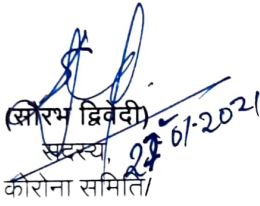 (सौरभ द्विवेदी)
सदस्य,
27-01-2021
कोरोना समिति/